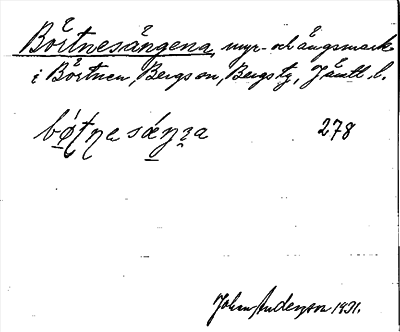 Börtnesängena, myr- och ängsmark
i Börtnen, Bergs sn, Bergs tg, Jämtl. l.
278
Johan Anderzon 1931.